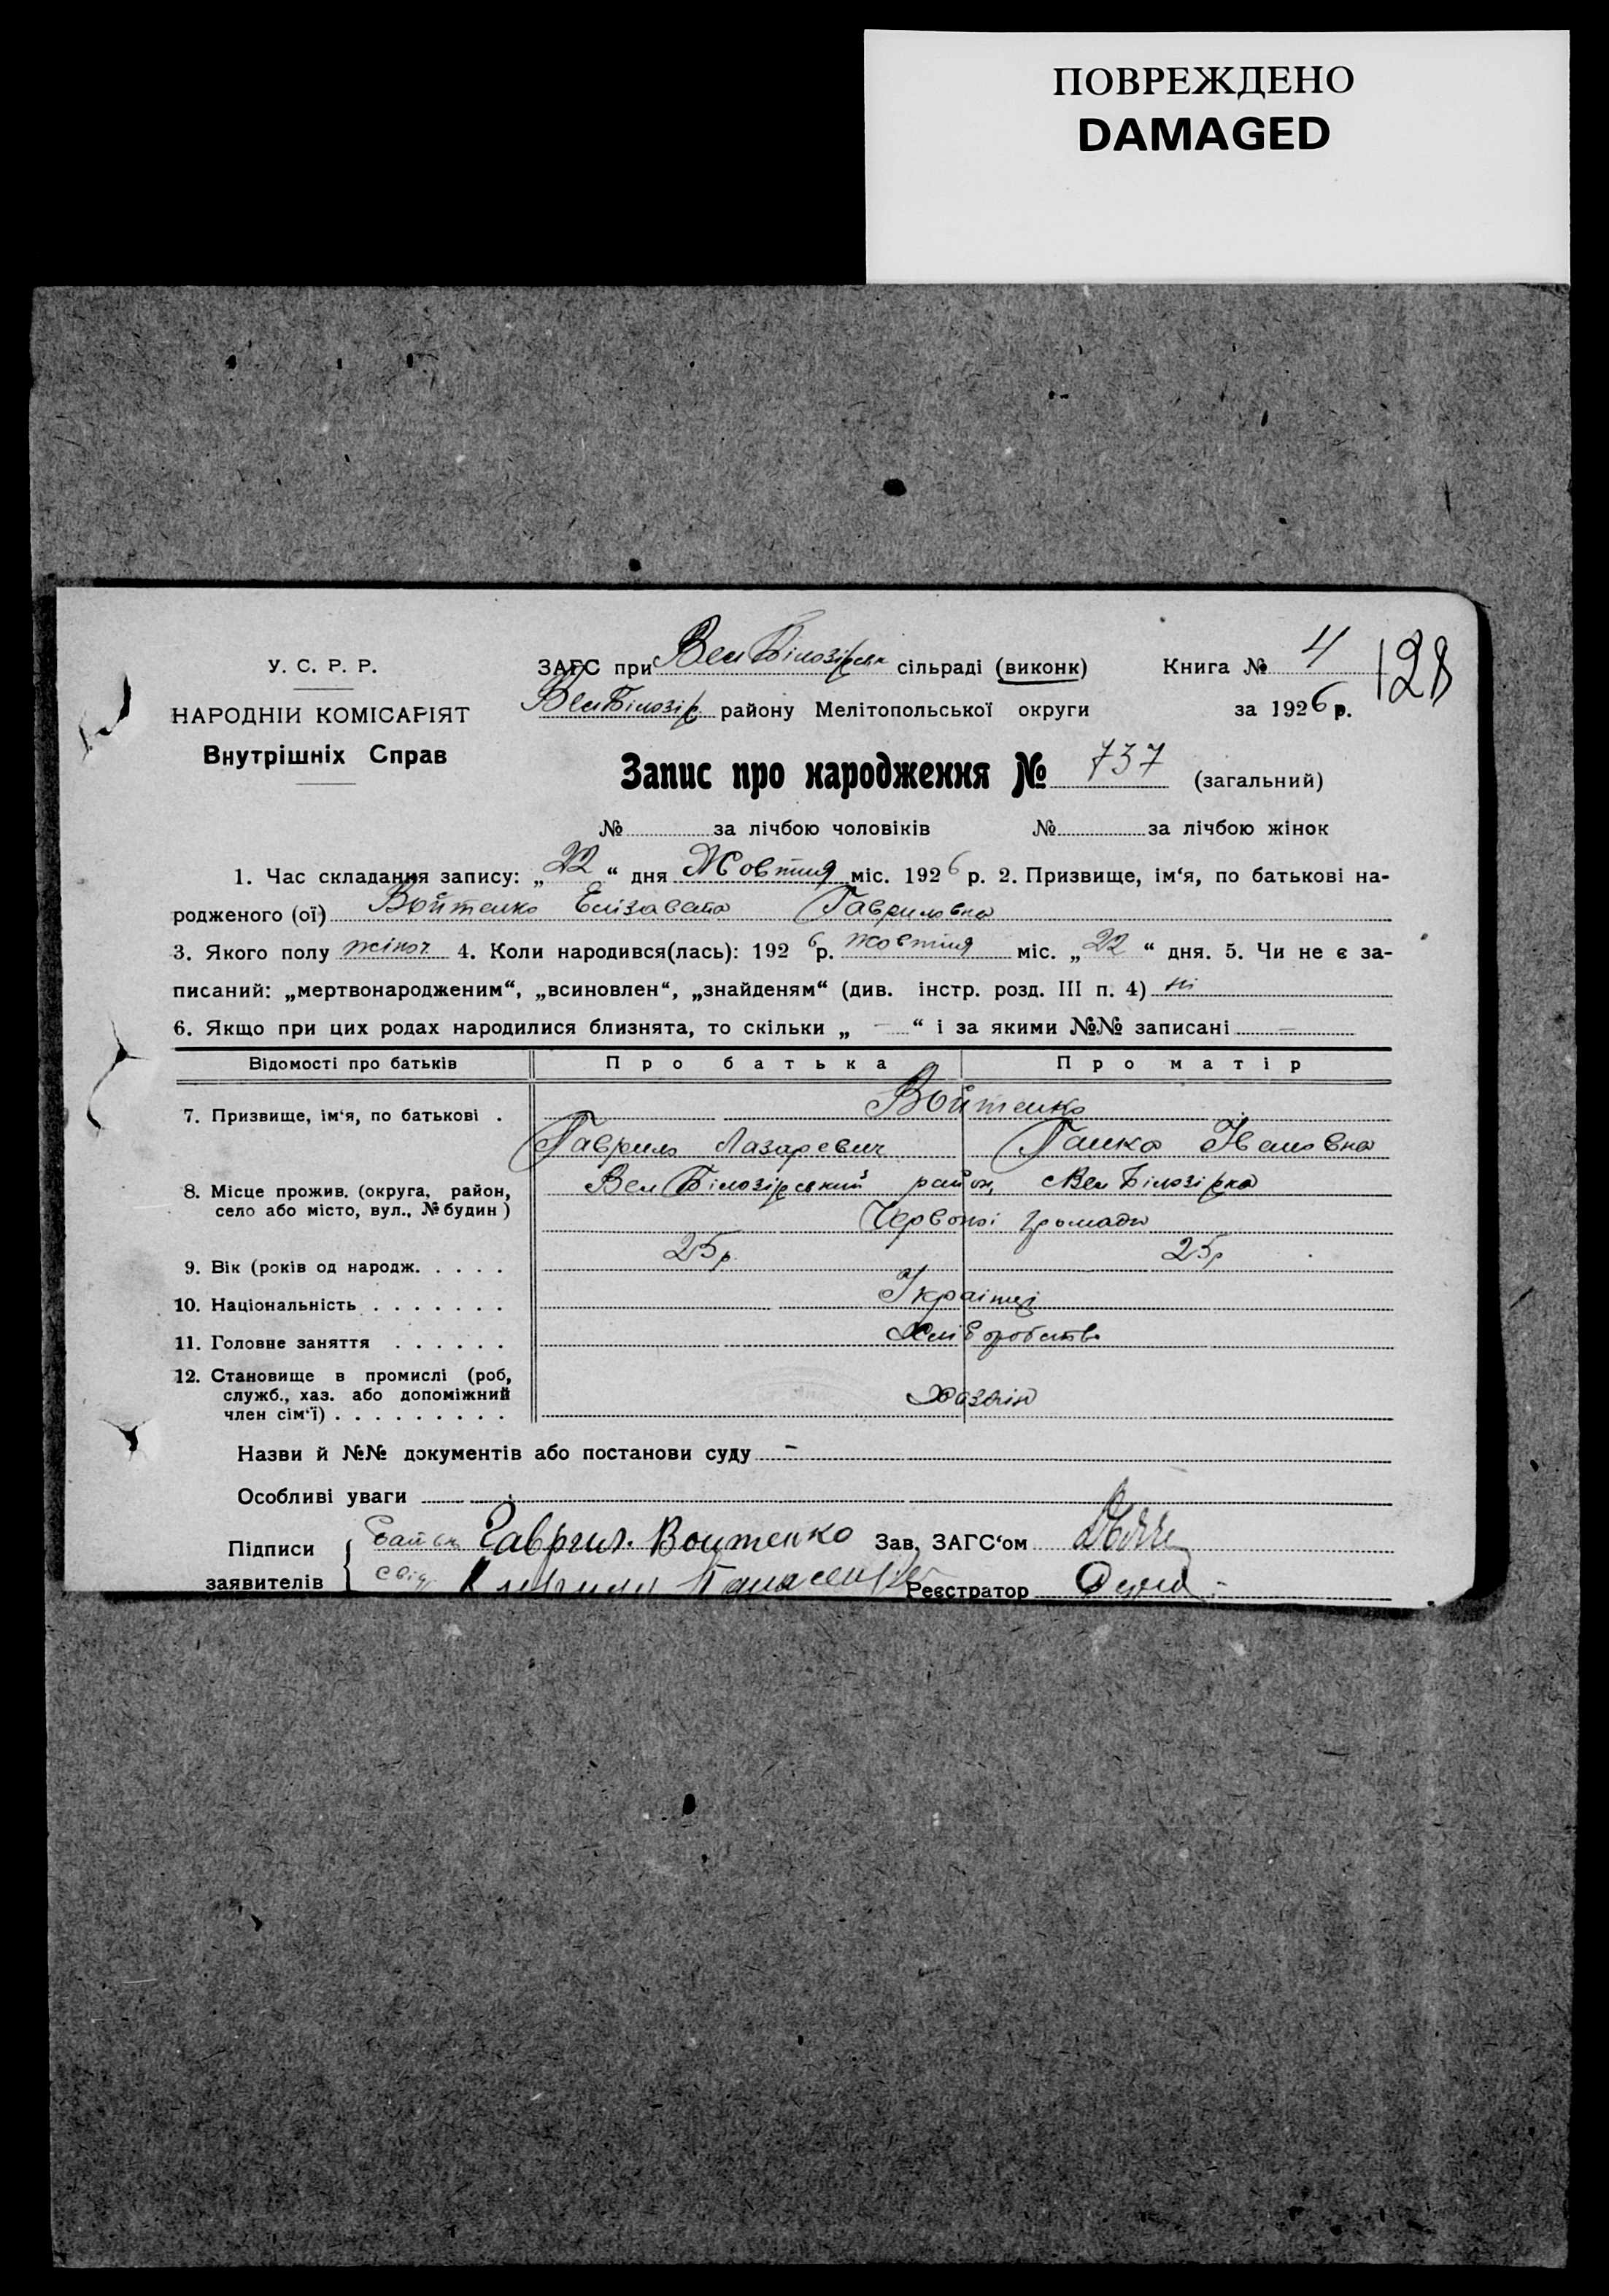 ПОВРЕЖДЕНО
DAMAGED
У. С. Р. Р.
НАРОДНІЙ КОМІСАРІЯТ
Внутрішніх Справ
ЗАГС при Вел Білозірськ сільраді (виконк)
Книга № 4
128
Вел Білозір району Мелітопольської округи
за 1926 р.
Запис про народження № 737 (загальний)
№ за лічбою чоловіків № за лічбою жінок
1. Час складання запису: „22“ дня Жовтня міс. 1926 р. 2. Призвище, ім‘я, по батькові на-
родженого (ої) Войтенко Елізавета Гавриловна
3. Якого полу жіноч 4. Коли народився(лась): 1926 р. жовтня міс. „22“ дня. 5. Чи не є за-
писаний: „мертвонародженим“, „всиновлен“, „знайденям“ (див. інстр. розд. III п. 4) ні
6. Якщо при цих родах народилися близнята, то скільки „ — “ і за якими №№ записані —
Відомості про батьків Про батька Про матір
7. Призвище, ім‘я, по батькові . Войтенко
Гаврило Лазаревич Ганка Івановна
8. Місце прожив. (округа, район, Вел Білозірський район, Вел Білозірка
село або місто, вул., № будин ) Червоної громади
9. Вік (років од народж. . . . . 25р. 25р
10. Національність . . . . . . . Україньці
11. Головне заняття . . . . . . Хліборобство
12. Становище в промислі (роб,
служб., хаз. або допоміжний Хазяїн
член сім‘ї) . . . . . . . . .
Назви й №№ документів або постанови суду —
Особливі уваги
Підписи Гаврил. Войтенко Зав. ЗАГС‘ом
заявителів свід. Реєстратор